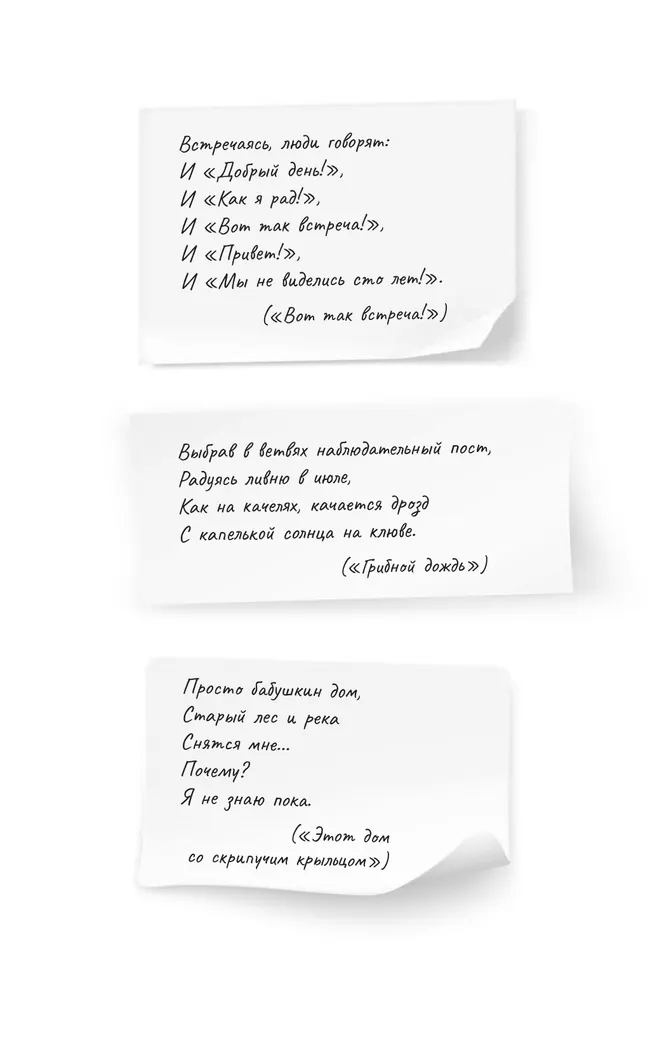 Встречаясь, люди говорят:
И «Добрый день!»,
И «Как я рад!»,
И «Вот так встреча!»,
И «Привет!»,
И «Мы не виделись сто лет!».
(«Вот так встреча!»)
Выбрав в ветвях наблюдательный пост,
Радуясь ливню в июле,
Как на качелях, качается дрозд
С капелькой солнца на клюве.
(«Грибной дождь»)
Просто бабушкин дом,
Старый лес и река
Снятся мне...
Почему?
Я не знаю пока.
(«Этот дом
со скрипучим крыльцом»)